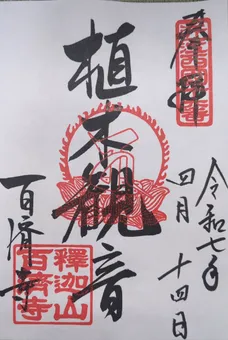 奉拝
令和七年
四月十四日
植木観音
百濟寺
釋迦山
百濟寺